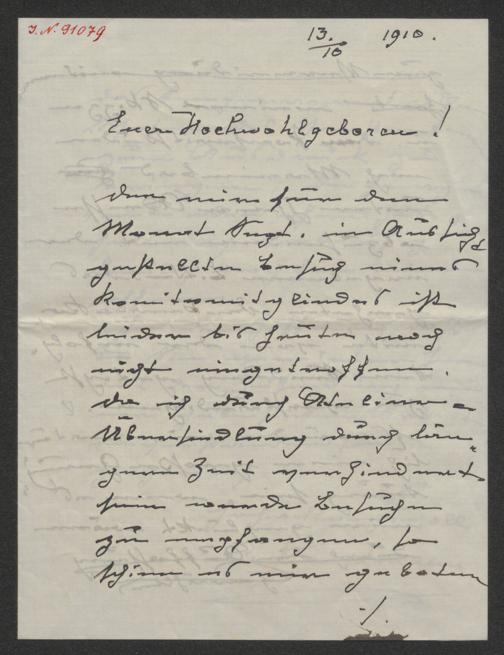 I. N. 91079
13./10 1910.
Euer Hochwohlgeboren!
der mir für den
Monat Sept. in Aussicht
gestellte Besuch eines
Komitemitgliedes ist
leider bis heute noch
nicht eingetroffen.
da ich durch Atelier=
Übersiedlung durch län-
gere Zeit verhindert
sein werde Besuche
zu empfangen, so
schien es mir geboten
./.